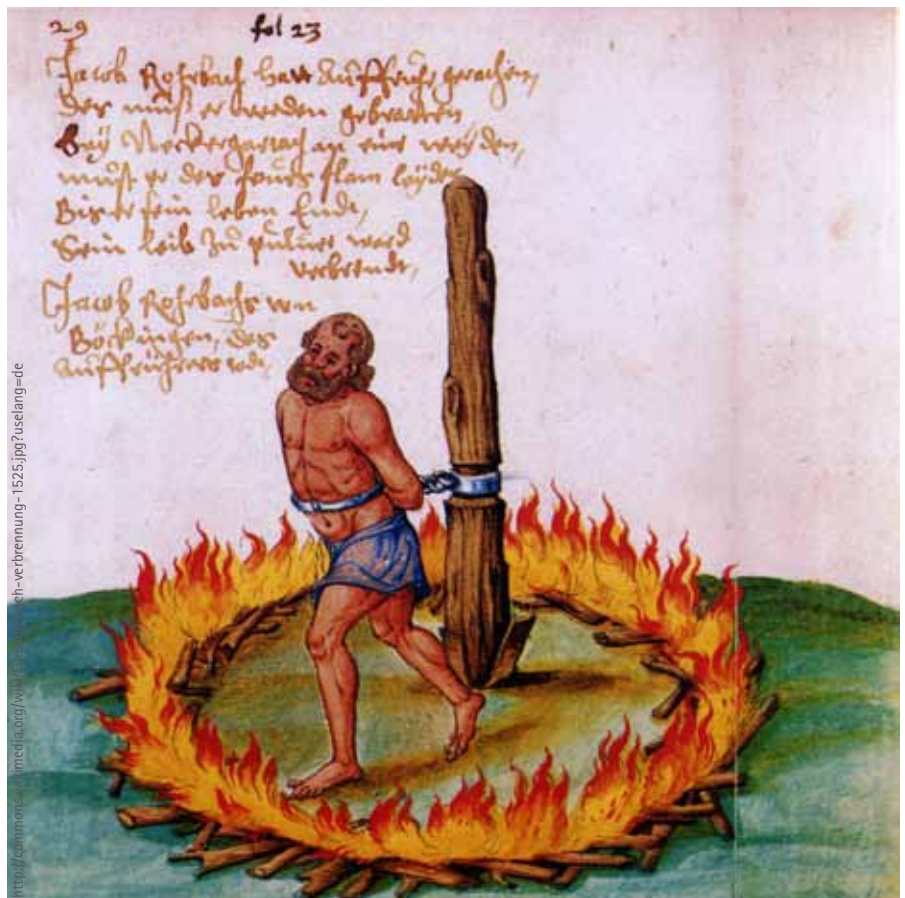 29 fol 23
Jacob Rohrbach hatt Auffruhr gerachen,
der must er werden gebratten
Bey Neckergartach an einr weyden,
must er des feurs flam leyden
Bis er sein leben Endt,
Sein leib zu puluer ward
verbrendt,
Jacob Rohrbachs von
Böckingen, des
Auffrührers todt,
http://commons.wikimedia.org/wiki/ ch-verbrennung-1525.jpg?uselang=de